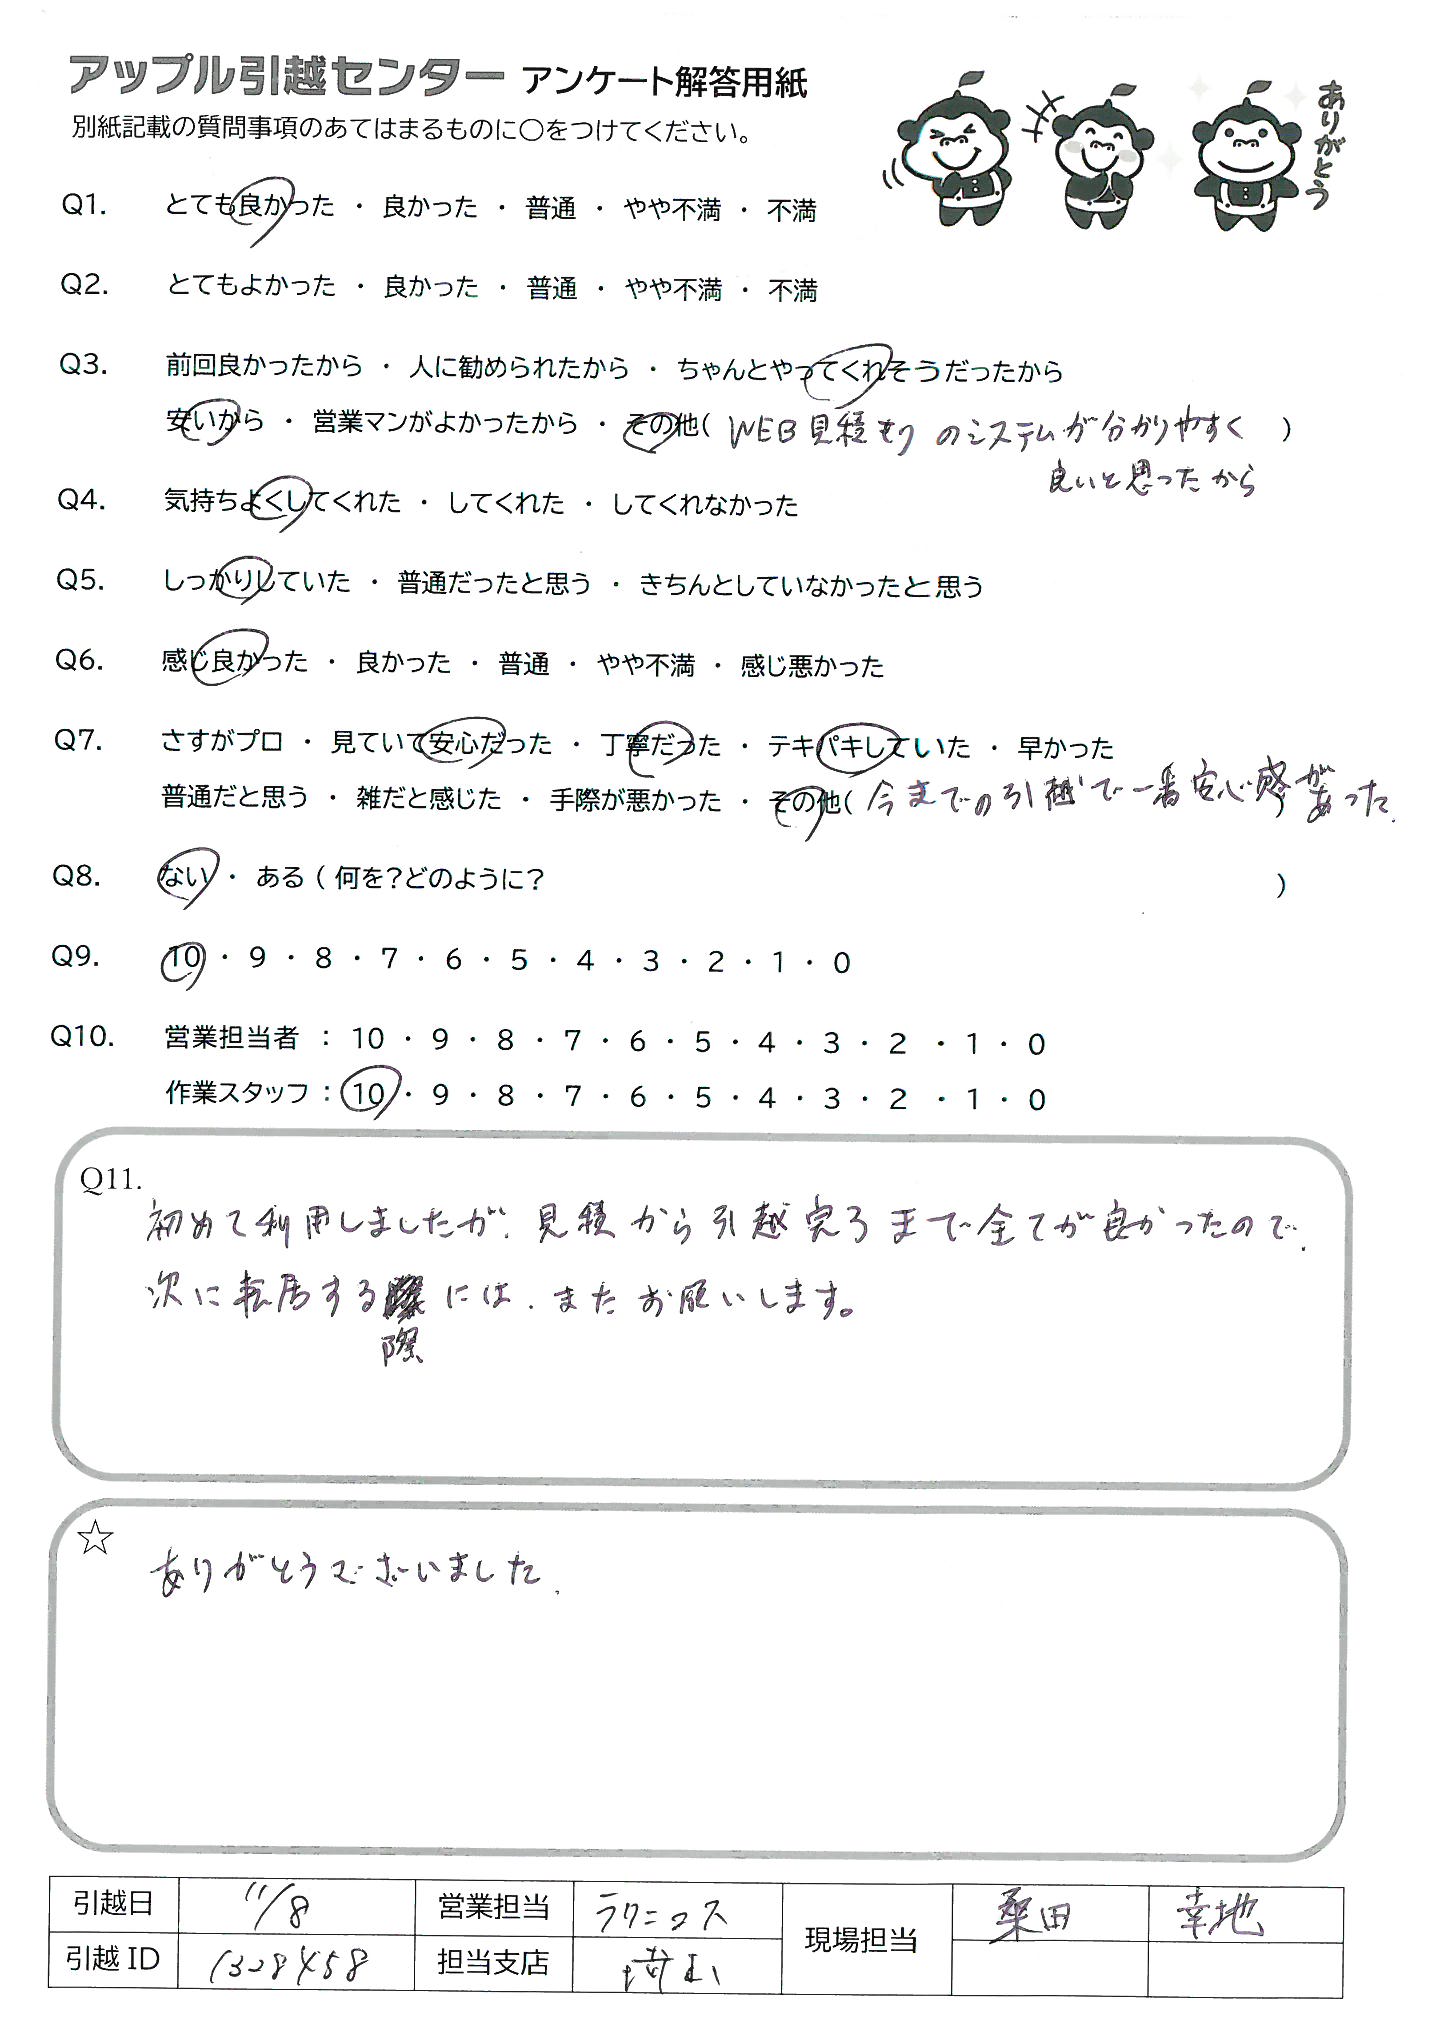 アップル引越センター アンケート解答用紙
別紙記載の質問事項のあてはまるものに○をつけてください。
ありがとう
Q1. とても良かった ・ 良かった ・ 普通 ・ やや不満 ・ 不満
Q2. とてもよかった ・ 良かった ・ 普通 ・ やや不満 ・ 不満
Q3. 前回良かったから ・ 人に勧められたから ・ ちゃんとやってくれそうだったから
安いから ・ 営業マンがよかったから ・ その他( WEB見積もりのシステムが分かりやすく )
良いと思ったから
Q4. 気持ちよくしてくれた ・ してくれた ・ してくれなかった
Q5. しっかりしていた ・ 普通だったと思う ・ きちんとしていなかったと思う
Q6. 感じ良かった ・ 良かった ・ 普通 ・ やや不満 ・ 感じ悪かった
Q7. さすがプロ ・ 見ていて安心だった ・ 丁寧だった ・ テキパキしていた ・ 早かった
普通だと思う ・ 雑だと感じた ・ 手際が悪かった ・ その他( 今までの引越で一番安心感があった. )
Q8. ない ・ ある ( 何を?どのように? )
Q9. 10 ・ 9 ・ 8 ・ 7 ・ 6 ・ 5 ・ 4 ・ 3 ・ 2 ・ 1 ・ 0
Q10. 営業担当者 : 10 ・ 9 ・ 8 ・ 7 ・ 6 ・ 5 ・ 4 ・ 3 ・ 2 ・ 1 ・ 0
作業スタッフ : 10 ・ 9 ・ 8 ・ 7 ・ 6 ・ 5 ・ 4 ・ 3 ・ 2 ・ 1 ・ 0
Q11.
初めて利用しましたが、見積から引越完了まで全てが良かったので、
次に転居する際には、またお願いします。
☆
ありがとうございました.
引越日 11/8 営業担当 ラクニコス 現場担当 桑田 幸地
引越ID 1328458 担当支店 埼玉